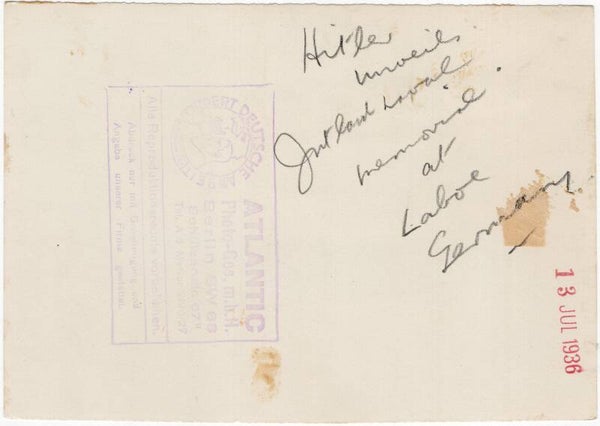 Hitler
unveils
Jutland naval
memorial
at
Laboe
Germany.
13 JUL 1936
ATLANTIC
Photo-Ges.m.b.H.
Berlin SW68
Alle Reproduktionsrechte vorbehalten.
Abdruck nur mit Genehmigung und
Angabe unserer Firma gestattet.